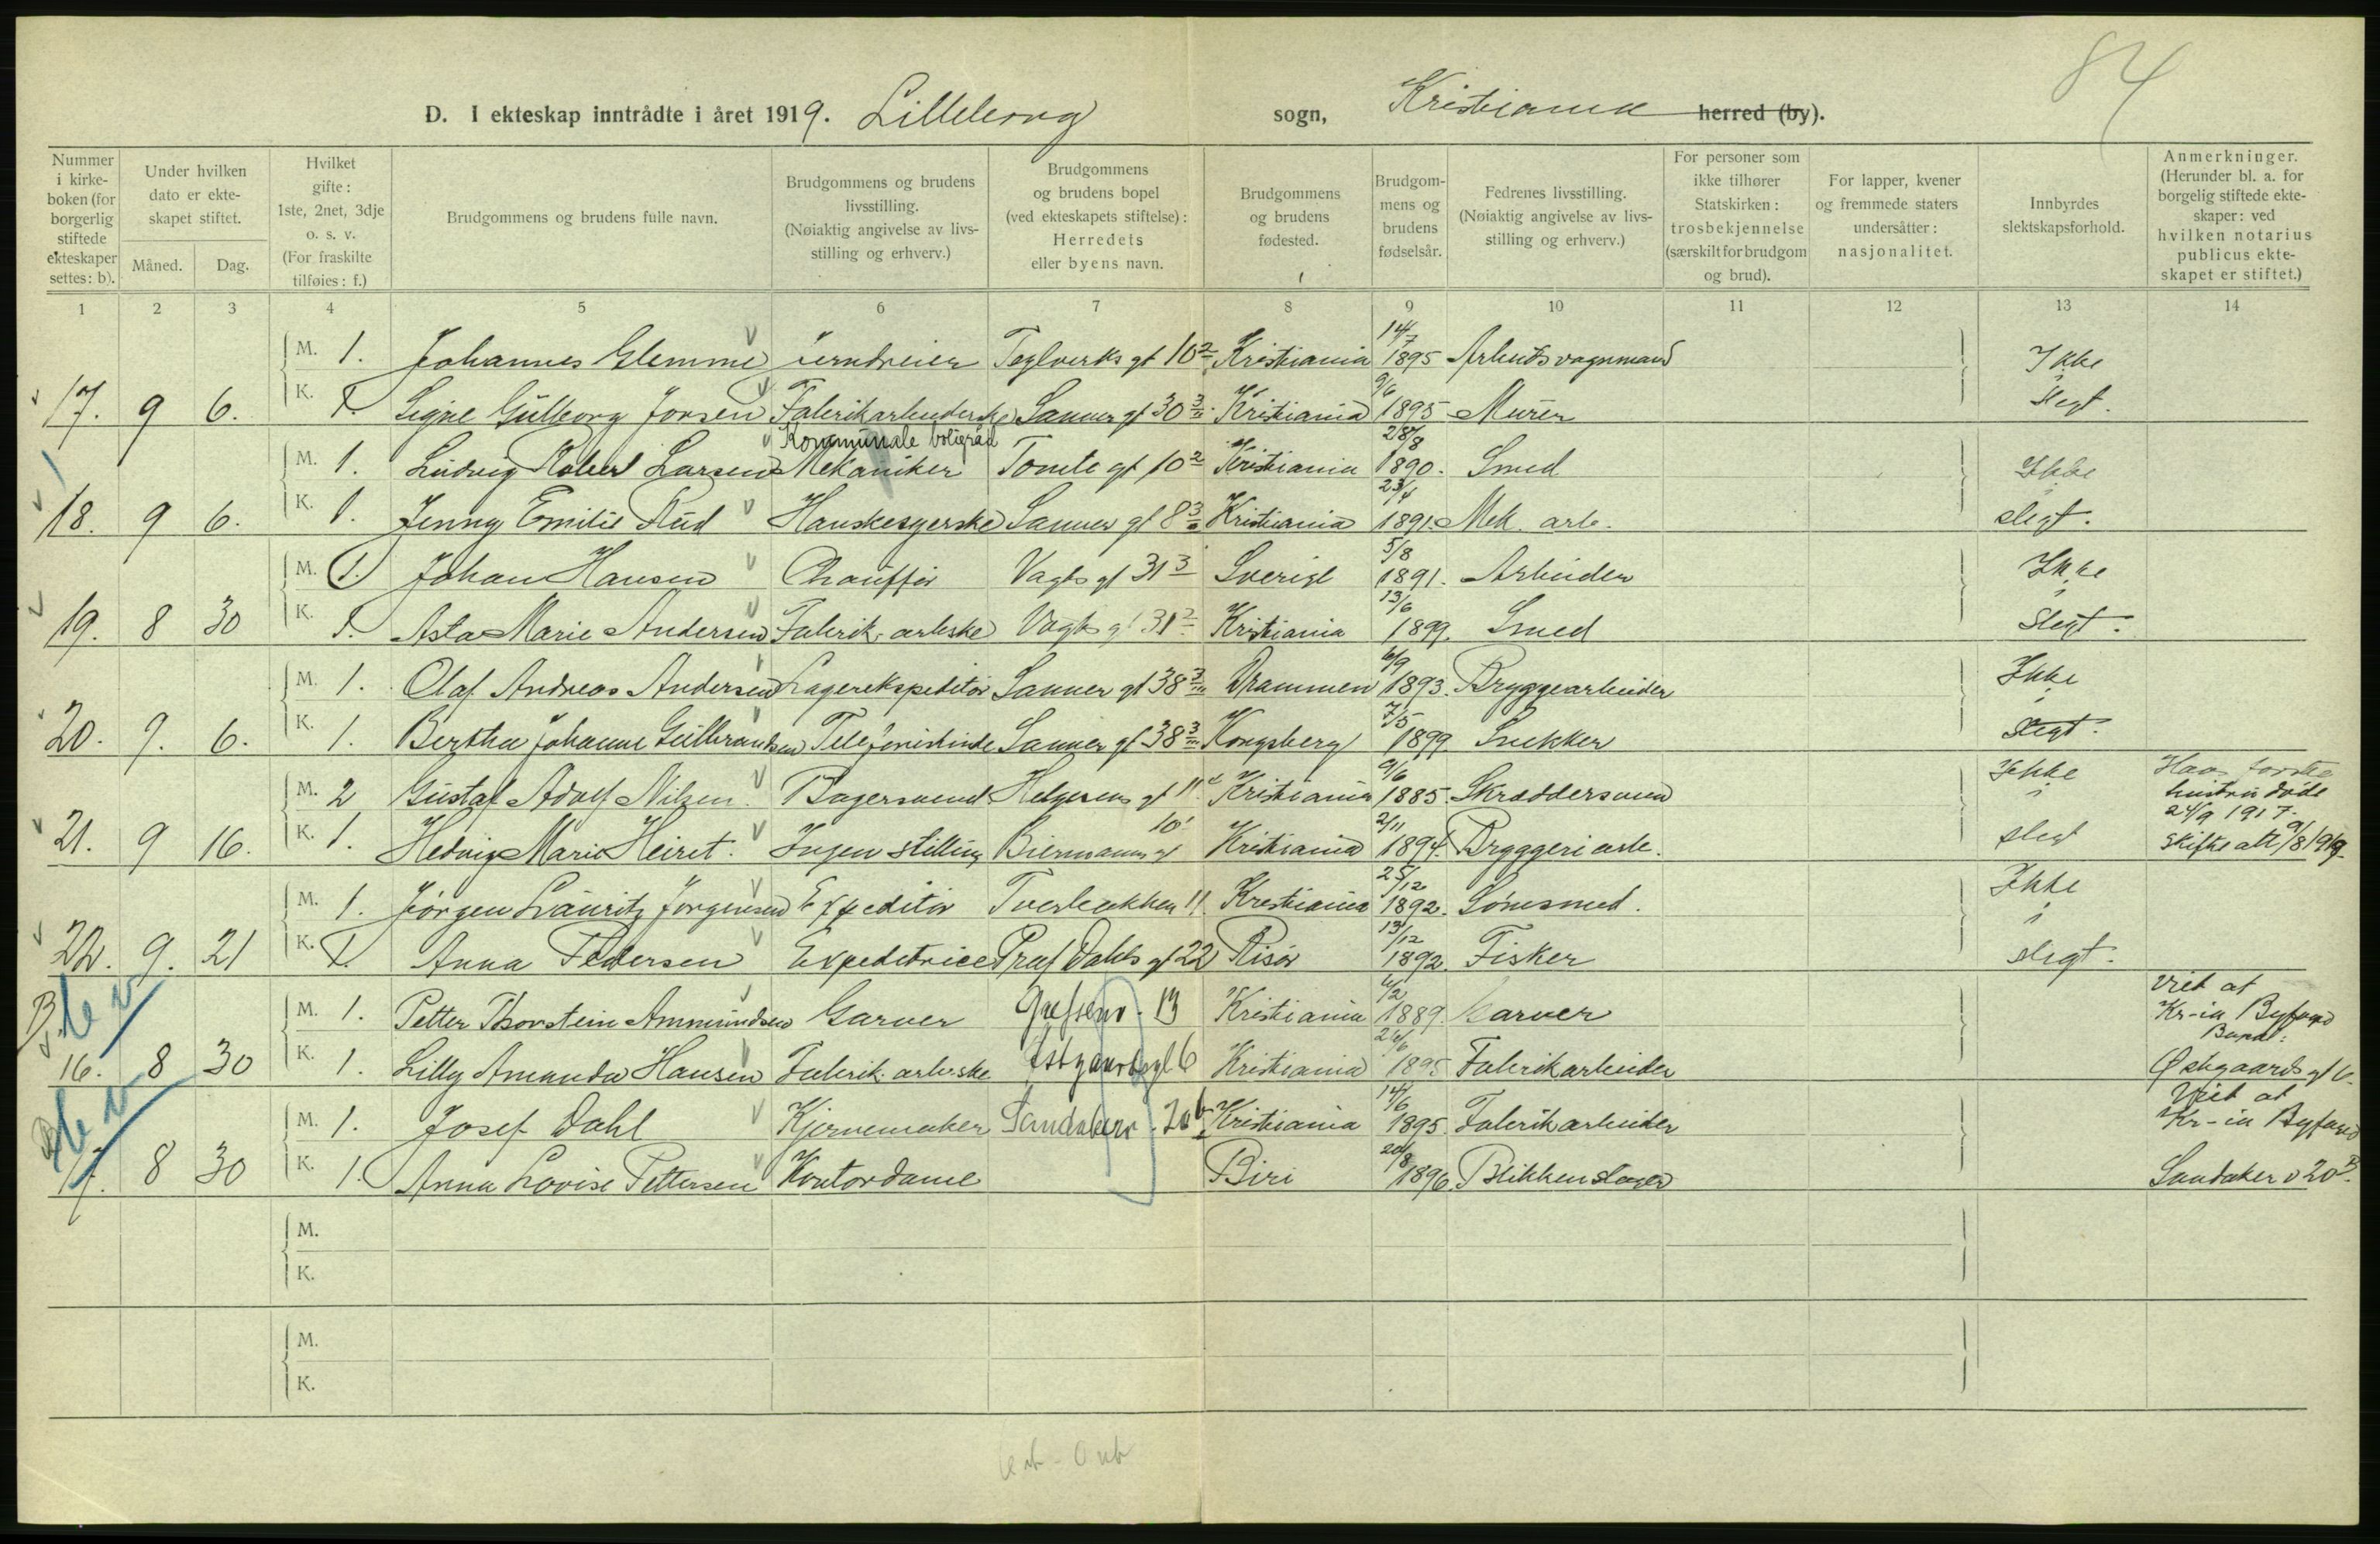 84
D. I ekteskap inntrådte i året 1919. Lilleborg sogn, Kristiania herred (by).
Nummer i kirkeboken (for borgerlig stiftede ekteskaper settes: b).
Under hvilken dato er ekteskapet stiftet.
Måned. Dag.
Hvilket gifte: 1ste, 2net, 3dje o. s. v. (For fraskilte tilføies: f.)
Brudgommens og brudens fulle navn.
Brudgommens og brudens livsstilling. (Nøiaktig angivelse av livsstilling og erhverv.)
Brudgommens og brudens bopel (ved ekteskapets stiftelse): Herredets eller byens navn.
Brudgommens og brudens fødested.
Brudgommens og brudens fødselsår.
Fedrenes livsstilling. (Nøiaktig angivelse av livsstilling og erhverv.)
For personer som ikke tilhører Statskirken: trosbekjennelse (særskilt for brudgom og brud).
For lapper, kvener og fremmede staters undersåtter: nasjonalitet.
Innbyrdes slektskapsforhold.
Anmerkninger. (Herunder bl. a. for borgelig stiftede ekteskaper: ved hvilken notarius publicus ekteskapet er stiftet.)
1 2 3 4 5 6 7 8 9 10 11 12 13 14
M. 1. Johannes Glemme jerndreier Teglverks gt 10 2 Kristiania 14/7 1895 Arbeidsvognmand Ikke i
17. 9 6. K. 1. Signe Gulborg Jonsen Fabrikarbeiderske Sanner gt 30 3 Kristiania 9/6 1895 Murer slegt.
Kommunale boligråd
M. 1. Ludvig Robert Larsen Mekaniker Tomte gt 10 2 Kristiania 28/8 1890. Smed Ikke i
18. 9 6. K. 1. Jenny Emilie Rud Hanskesyerske Sanner gt 8 3 Kristiania 23/4 1891. Mek. arb. slegt.
M. 1. Johan Hansen Chauffør Vagts gt 31 3 Sverige 5/8 1891. Arbeider Ikke i
19. 8 30 K. 1. Asta Marie Andersen Fabrik. arbske Vagts gt 31 2 Kristiania 13/6 1899. Smed slegt.
M. 1. Olaf Andreas Andersen Lagerekspeditør Sanner gt 38 3 Drammen 6/9 1893. Bryggearbeider Ikke i
20. 9. 6. K. 1. Bertha Johanne Gulbrandsen Telefonistinde Sanner gt 38 3 Kongsberg 7/5 1899. Snekker slegt.
M. 2 Gustaf Adolf Nilsen. Bagersvend Helgesens gt 11 4 Kristiania 9/6 1885. Skræddersvend Ikke i Hans første hustru døde 24/9 1917.
21. 9 16. K. 1. Hedvig Marie Heiret. Ingen stilling Biermanns gt 10 1 Kristiania 2/11 1894. Bryggeriarb. slegt skifte att 9/8 1919.
M. 1. Jørgen Lauritz Jørgensen Expeditør Tverbakken 11. Kristiania 25/12 1892. Lönsmed. Ikke i
22. 9. 21 K. 1. Anna Pedersen Expeditrice Prof Dahls gt 22 Risør 13/12 1892. Fisker slegt.
B M. 1. Petter Thorstein Ammundsen Garver Grefsenv. 13 Kristiania 4/2 1889. Garver Viet at Kr-ia Byfogd
16. 8 30 K. 1. Lilly Amanda Hansen Fabrik. arb.ske Østgaardsgt 6 Kristiania 26/6 1895 Fabrikarbeider Østgaards gt 6.
M. 1. Josef Dahl Kjernemaker Sandakerv. 20 b Kristiania 14/6 1895. Fabrikarbeider Viet at Kr-ia Byfogd
17. 8 30 K. 1. Anna Lovise Pettersen Kontordame Biri 20/8 1896. Blikkenslager Sandaker v 20 B.
M.
K.
M.
K.